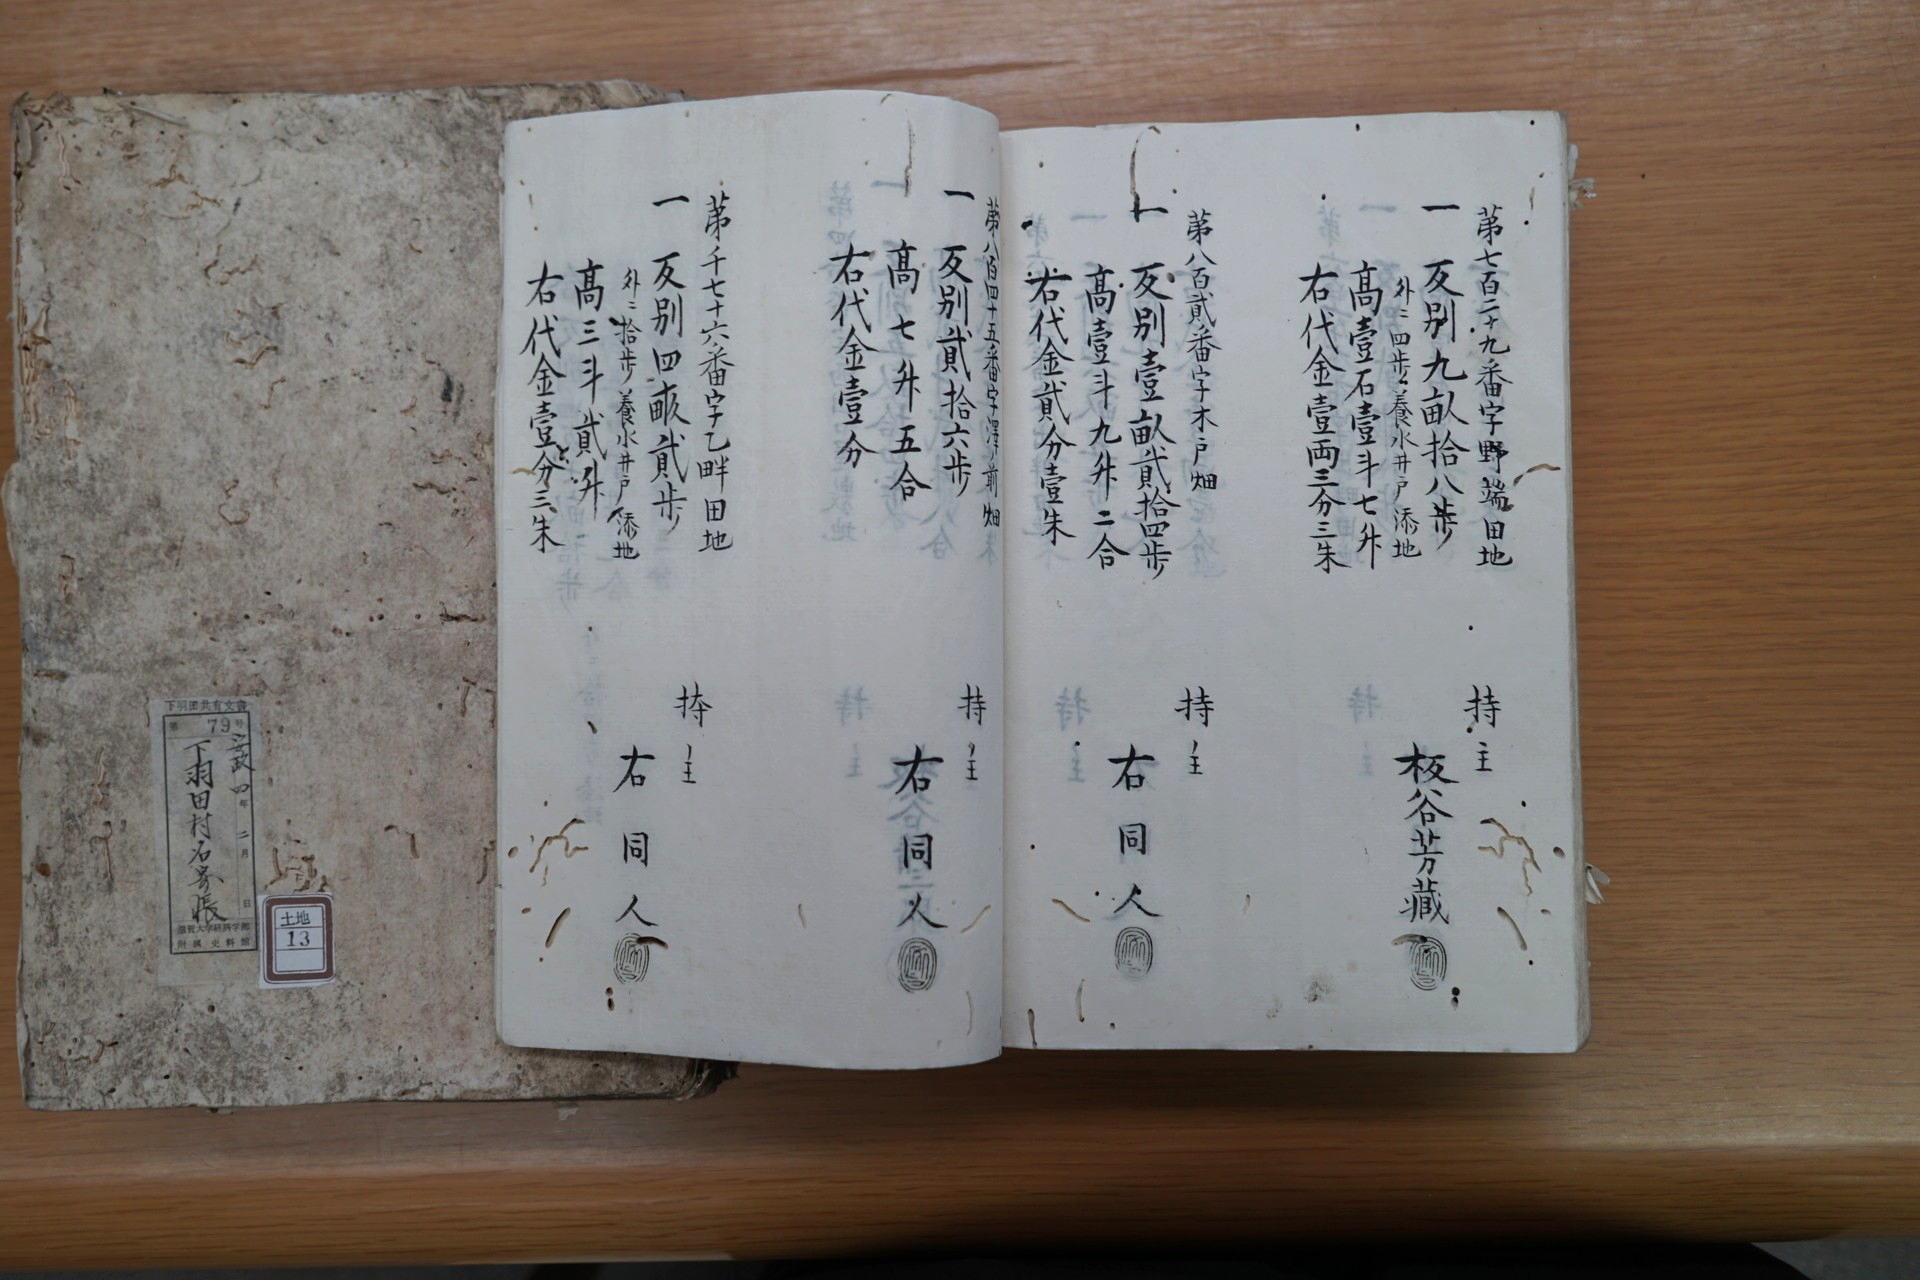 第七百二十九番字野端田地
一 反別九畝拾八歩
外ニ四歩養水井戸添地
高壹石壹斗七升
右代金壹両三分三朱
持主
板谷芳藏
第八百貳番字木戸畑
一 反別壹畝貳拾四歩
高壹斗九升二合
右代金貳分壹朱
持主
右同人
第八百四十五番字澤前畑
一 反別貳拾六歩
高七升五合
右代金壹分
持主
右同人
第千七十六番字乙畔田地
一 反別四畝貳歩
外ニ拾歩養水井戸添地
高三斗貳升
右代金壹分三朱
持主
右同人
下羽田共有文書
第79号
政四年二月日
下羽田村名寄帳
滋賀大学経済学部
附属史料館
土地
13